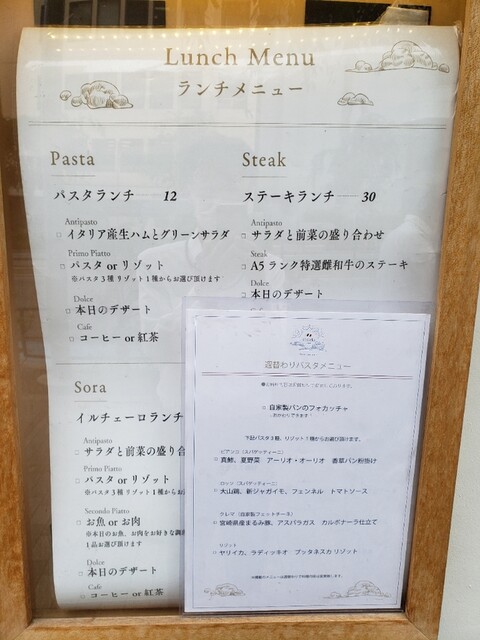 Lunch Menu
ランチメニュー
Pasta
パスタランチ — 12
Antipasto
□ イタリア産生ハムとグリーンサラダ
Primo Piatto
□ パスタ or リゾット
※パスタ3種 リゾット1種からお選び頂けます
Dolce
□ 本日のデザート
Cafe
□ コーヒー or 紅茶
Steak
ステーキランチ — 30
Antipasto
□ サラダと前菜の盛り合わせ
Steak
□ A5 ランク特選雌和牛のステーキ
Dolce
□ 本日のデザート
Sora
イルチェーロランチ
Antipasto
□ サラダと前菜の盛り合
Primo Piatto
□ パスタ or リゾット
※パスタ3種 リゾット1種からお
Secondo Piatto
□ お魚 or お肉
※本日のお魚、お肉をお好きな調
1品お選び頂けます
Dolce
□ 本日のデザート
Cafe
□ コーヒー or 紅茶
週替わりパスタメニュー
□ 自家製パンのフォカッチャ
おかわりできます
下記パスタ3種、リゾット1種からお選び頂けます。
ビアンコ（スパゲッティーニ）
□ 真鯵、夏野菜 アーリオ・オーリオ 香草パン粉掛け
ロッソ（スパゲッティーニ）
□ 大山鶏、新ジャガイモ、フェンネル トマトソース
クレマ（自家製フェットチーネ）
□ 宮崎県産まるみ豚、アスパラガス カルボナーラ仕立て
リゾット
□ ヤリイカ、ラディッキオ プッタネスカリゾット